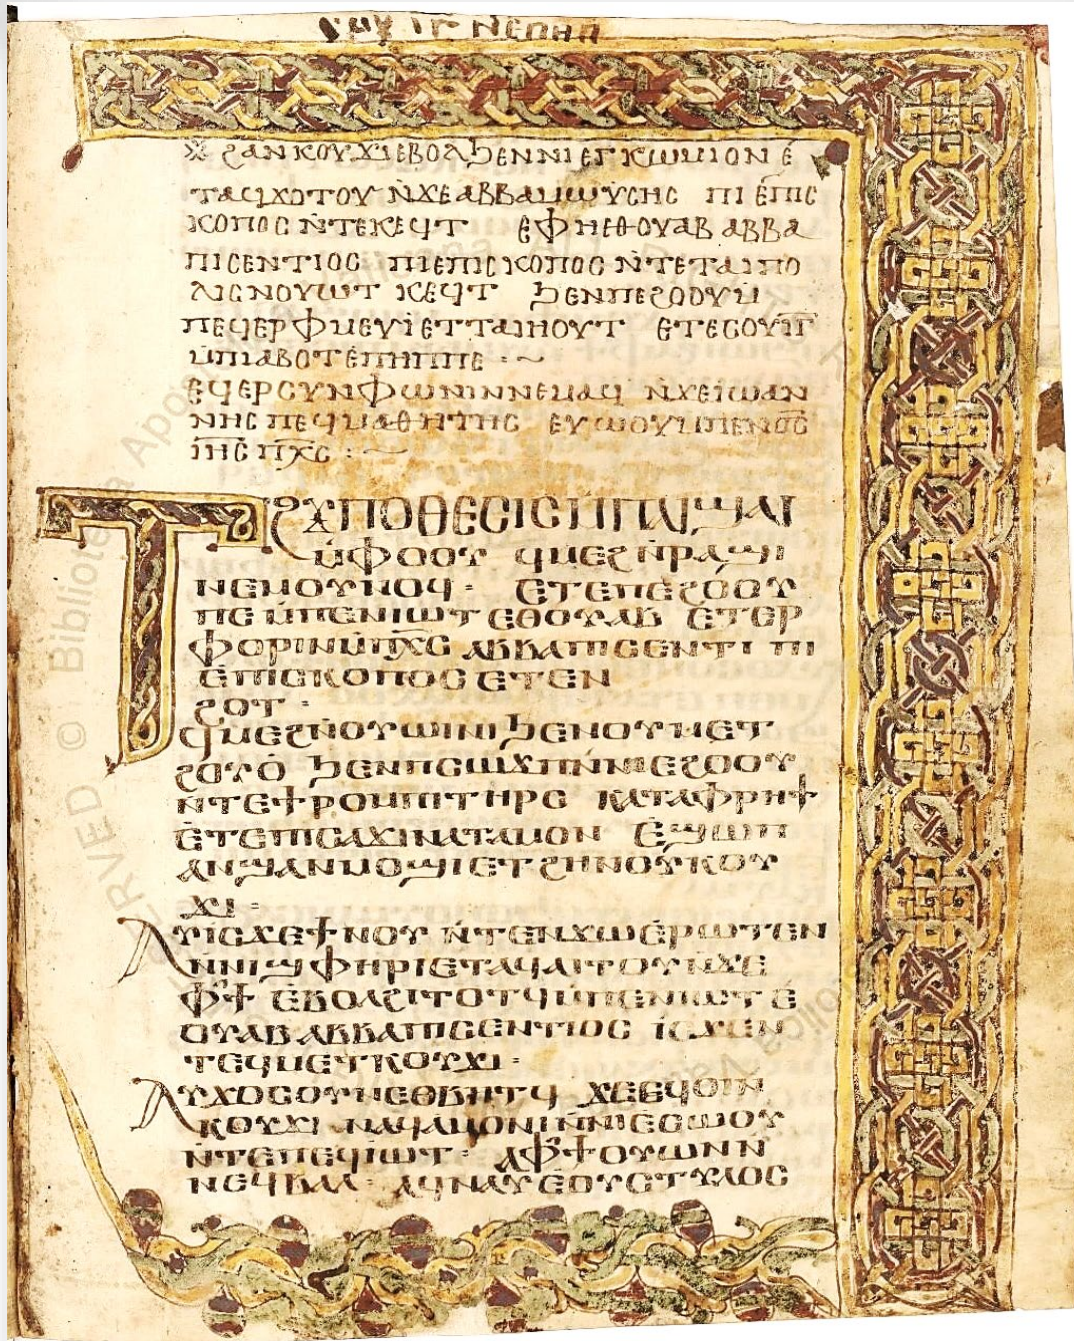 ϩⲁⲛⲕⲟⲩϫⲓ ⲉⲃⲟⲗ ϧⲉⲛ ⲛⲓⲉⲅⲕⲱⲙⲓⲟⲛ ⲉ̇
ⲧⲁϥϫⲟⲧⲟⲩ ⲛ̇ϫⲉ ⲁⲃⲃⲁ ⲙⲱⲩⲥⲏⲥ ⲡⲓ ⲉ̇ⲡⲓⲥ
ⲕⲟⲡⲟⲥ ⲛ̇ⲧⲉ ⲕⲉϥⲧ ⲉⲫⲏⲉⲑⲟⲩⲁⲃ ⲁⲃⲃⲁ
ⲡⲓⲥⲉⲛⲧⲓⲟⲥ ⲡⲓⲉⲡⲓⲥⲕⲟⲡⲟⲥ ⲛ̇ⲧⲉ ⲧⲁⲓⲡⲟ
ⲗⲓⲥ ⲛⲟⲩⲱⲧ ⲕⲉϥⲧ ϧⲉⲛ ⲡⲉϩⲟⲟⲩ ⲙ̇
ⲡⲉϥⲉⲣⲫⲙⲉⲩⲓ̇ ⲉⲧⲧⲁⲓⲏⲟⲩⲧ ⲉⲧⲉ ⲥⲟⲩ ⲓ̅ⲅ̅
ⲙ̇ⲡⲓⲁⲃⲟⲧ ⲉ̇ⲡⲏⲡⲡⲉ :~
ⲉϥⲉⲣⲥⲩⲛⲫⲱⲛⲓⲛ ⲛⲉⲙⲁϥ ⲛ̇ϫⲉ ⲓ̇ⲱⲁⲛ
ⲛⲏⲥ ⲡⲉϥⲙⲁⲑⲏⲧⲏⲥ ⲉⲩⲱⲟⲩ ⲙ̇ⲡⲉⲛⲟ̅ⲥ̅
ⲓ̅ⲏ̅ⲥ̅ ⲡ̅ⲭ̅ⲥ̅ :~
ⲧϩⲩⲡⲟⲑⲉⲥⲓⲥ ⲙ̇ⲡⲁⲓϣⲁⲓ
ⲙ̇ⲫⲟⲟⲩ ϥⲙⲉϩ ⲛ̇ⲣⲁϣⲓ
ⲛⲉⲙ ⲟⲩⲛⲟϥ · ⲉⲧⲉ ⲡⲉ̇ϩⲟⲟⲩ
ⲡⲉ ⲙ̇ⲡⲉⲛⲓⲱⲧ ⲉⲑⲟⲩⲁⲃ ⲉⲧⲉⲣ
ⲫⲟⲣⲓⲛ ⲙ̇ⲡ̅ⲭ̅ⲥ̅ ⲁⲃⲃⲁ ⲡⲓⲥⲉⲛⲧⲓ ⲡⲓ
ⲉ̇ⲡⲓⲥⲕⲟⲡⲟⲥ ⲉⲧⲉⲛ
ϩⲟⲧ ·
ϥⲙⲉϩ ⲛ̇ⲟⲩⲱⲓⲛⲓ ϧⲉⲛ ⲟⲩⲙⲉⲧ
ϩⲟⲩⲟ̇ ϧⲉⲛ ⲡⲥⲱϫⲡ ⲛ̇ⲛⲓⲉϩⲟⲟⲩ
ⲛ̇ⲧⲉ ϯⲣⲟⲙⲡⲓ ⲧⲏⲣⲥ ⲕⲁⲧⲁ ⲫⲣⲏϯ
ⲉ̇ⲧⲉ ⲡⲓⲥⲁϫⲓ ⲛⲁⲧⲁⲙⲟⲛ ⲉ̇ϣⲱⲡ
ⲁⲛϣⲁⲛⲙⲟϣⲓ ⲉⲧϩⲏ ⲛⲟⲩⲕⲟⲩ
ϫⲓ ·
ⲁⲩⲓⲥ ϫⲉ ϯⲛⲟⲩ ⲛ̇ⲧⲉⲛϫⲱ ⲉ̇ⲣⲱⲧⲉⲛ
ⲛ̇ⲛⲓϣⲫⲏⲣⲓ ⲉⲧⲁϥⲁⲓⲧⲟⲩ ⲛ̇ϫⲉ
ⲫϯ ⲉ̇ⲃⲟⲗϩⲓⲧⲟⲧϥ ⲙ̇ⲡⲉⲛⲓⲱⲧ ⲉ̇
ⲟⲩⲁⲃ ⲁⲃⲃⲁ ⲡⲓⲥⲉⲛⲧⲓⲟⲥ ⲓⲥϫⲉⲛ
ⲧⲉϥⲙⲉⲧⲕⲟⲩϫⲓ ·
ⲁⲩϫⲟⲥ ⲟⲩⲛ ⲉⲑⲃⲏⲧϥ ϫⲉ ⲉϥⲟⲓ ⲛ̇
ⲕⲟⲩϫⲓ ⲛⲁϥⲁ̇ⲙⲟⲛⲓ ⲛ̇ⲛⲓⲉⲥⲱⲟⲩ
ⲛ̇ⲧⲉ ⲡⲉϥⲓⲱⲧ · ⲁ̇ ⲫϯ ⲟⲩⲱⲛ ⲛ̇
ⲛⲉϥⲃⲁⲗ · ⲁϥⲛⲁⲩ ⲉ̇ⲟⲩⲥⲧⲩⲗⲟⲥ